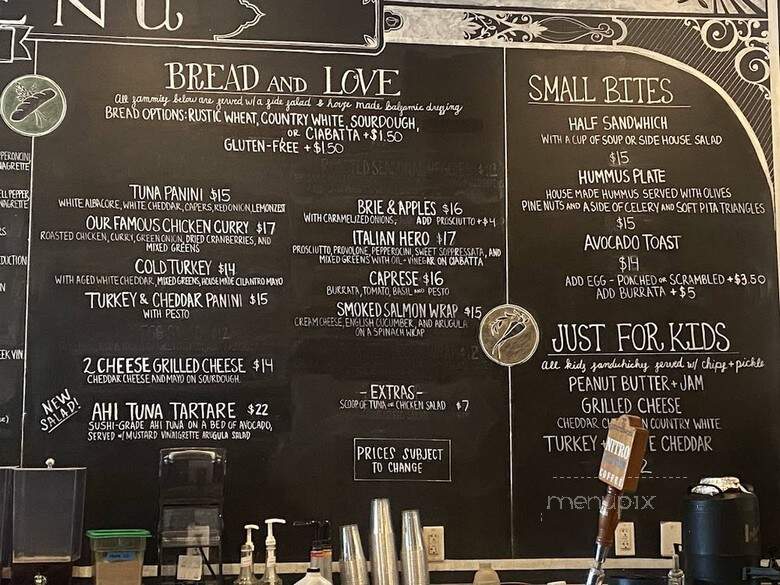 ENU
BREAD AND LOVE
All sammies below are served w/a side salad & house made balsamic dressing
BREAD OPTIONS: RUSTIC WHEAT, COUNTRY WHITE, SOURDOUGH,
OR CIABATTA +$1.50
GLUTEN-FREE +$1.50
TUNA PANINI $15
WHITE ALBACORE, WHITE CHEDDAR, CAPERS, RED ONION, LEMON ZEST
OUR FAMOUS CHICKEN CURRY $17
ROASTED CHICKEN, CURRY, GREEN ONION, DRIED CRANBERRIES, AND
MIXED GREENS
COLD TURKEY $14
WITH AGED WHITE CHEDDAR, MIXED GREENS, HOUSE MADE CILANTRO MAYO
TURKEY & CHEDDAR PANINI $15
WITH PESTO
2 CHEESE GRILLED CHEESE $14
CHEDDAR CHEESE AND MAYO ON SOURDOUGH.
NEW
SALAD!
AHI TUNA TARTARE $22
SUSHI-GRADE AHI TUNA ON A BED OF AVOCADO,
SERVED w/ MUSTARD VINAIGRETTE ARUGULA SALAD
BRIE & APPLES $16
WITH CARAMELIZED ONIONS; ADD PROSCIUTTO +$4
ITALIAN HERO $17
PROSCIUTTO, PROVOLONE, PEPPEROCINI, SWEET SOPPRESSATA, AND
MIXED GREENS WITH OIL-VINEGAR ON CIABATTA
CAPRESE $16
BURRATA, TOMATO, BASIL AND PESTO
SMOKED SALMON WRAP $15
CREAM CHEESE, ENGLISH CUCUMBER, AND ARUGULA
ON A SPINACH WRAP
-EXTRAS-
SCOOP OF TUNA OR CHICKEN SALAD $7
PRICES SUBJECT
TO CHANGE
SMALL BITES
HALF SANDWHICH
WITH A CUP OF SOUP OR SIDE HOUSE SALAD
$15
HUMMUS PLATE
HOUSE MADE HUMMUS SERVED WITH OLIVES
PINE NUTS AND A SIDE OF CELERY AND SOFT PITA TRIANGLES
$15
AVOCADO TOAST
$14
ADD EGG - POACHED OR SCRAMBLED +$3.50
ADD BURRATA +$5
JUST FOR KIDS
All kids sandwiches served w/ chips + pickle
PEANUT BUTTER + JAM
GRILLED CHEESE
CHEDDAR ON COUNTRY WHITE
TURKEY CHEDDAR
NITRO
COFFEE
menupix